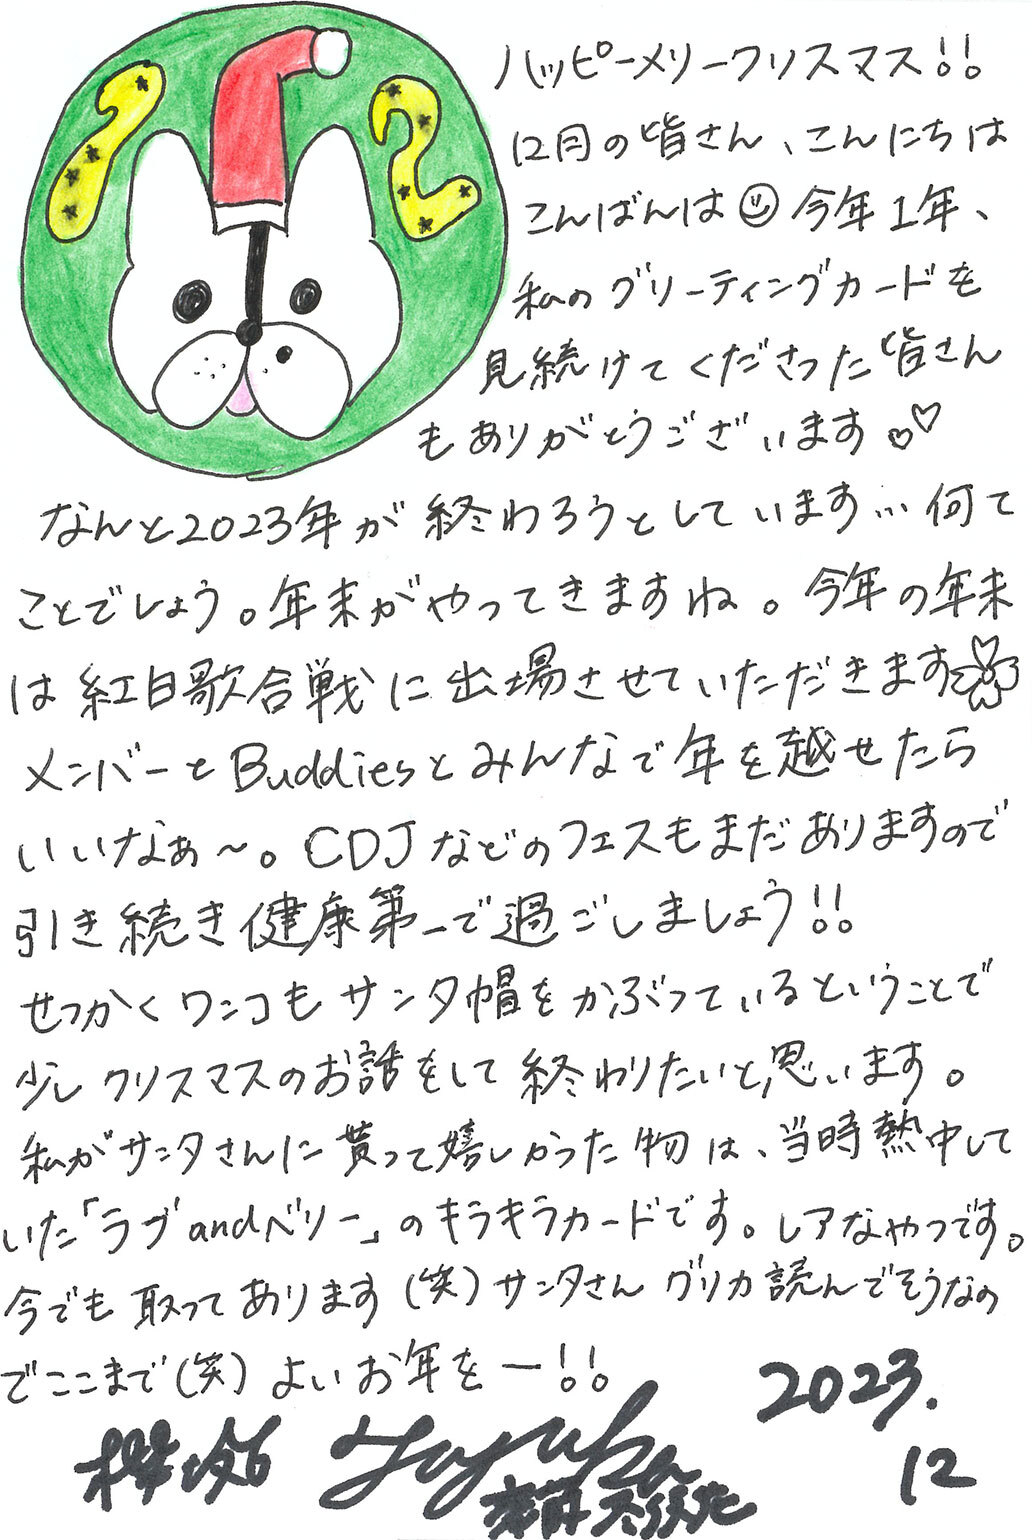 12
ハッピーメリークリスマス!!
12月の皆さん、こんにちは
こんばんは 今年1年、
私のグリーティングカードを
見続けてくださった皆さん
もありがとうございます
なんと2023年が終わろうとしています…何て
ことでしょう。年末がやってきますね。今年の年末
は紅白歌合戦に出場させていただきます
メンバーとBuddiesとみんなで年を越せたら
いいなぁ~。CDJなどのフェスもまだありますので
引き続き健康第一で過ごしましょう!!
せっかくワンコもサンタ帽をかぶっているということで
少しクリスマスのお話をして終わりたいと思います。
私がサンタさんに貰って嬉しかった物は、当時熱中して
いた「ラブandベリー」のキラキラカードです。レアなやつです。
今でも取ってあります(笑)サンタさんグリカ読んでそうなの
でここまで(笑)よいお年をー!!
2023.
櫻坂46
12